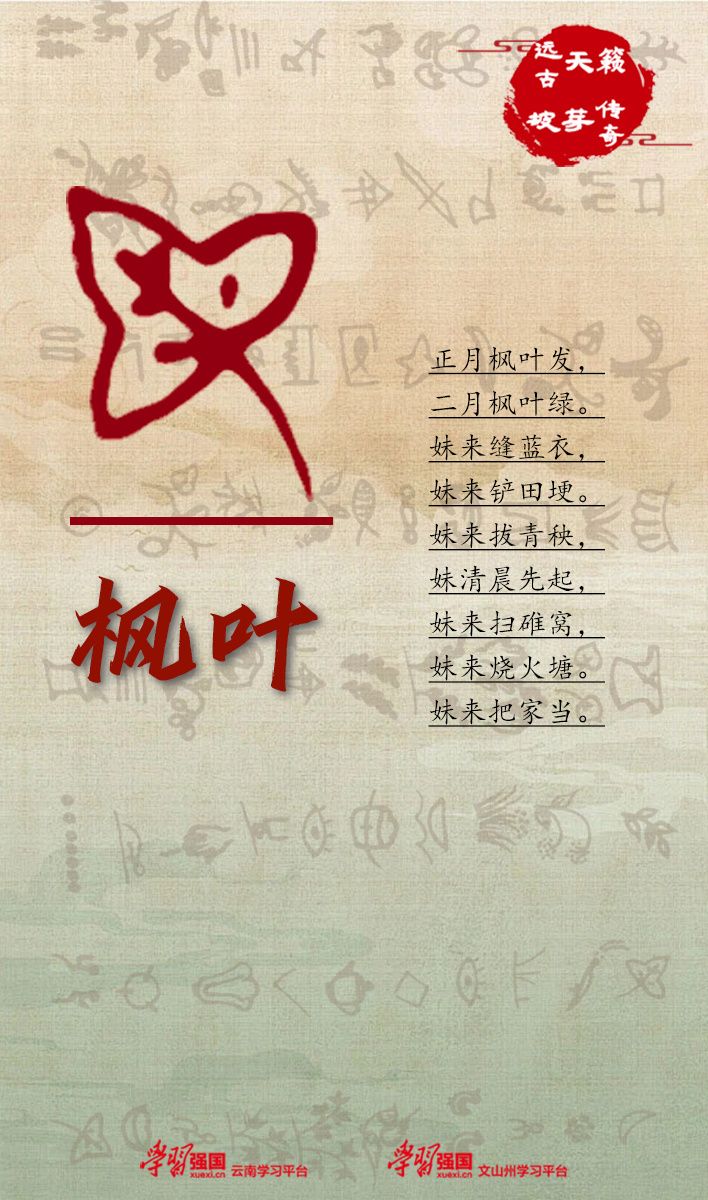 远古 天籁
坡芽 传奇
正月枫叶发，
二月枫叶绿。
妹来缝蓝衣，
妹来铲田埂。
妹来拔青秧，
妹清晨先起，
妹来扫碓窝，
妹来烧火塘。
妹来把家当。
枫叶
学习强国 xuexi.cn 云南学习平台
学习强国 xuexi.cn 文山州学习平台